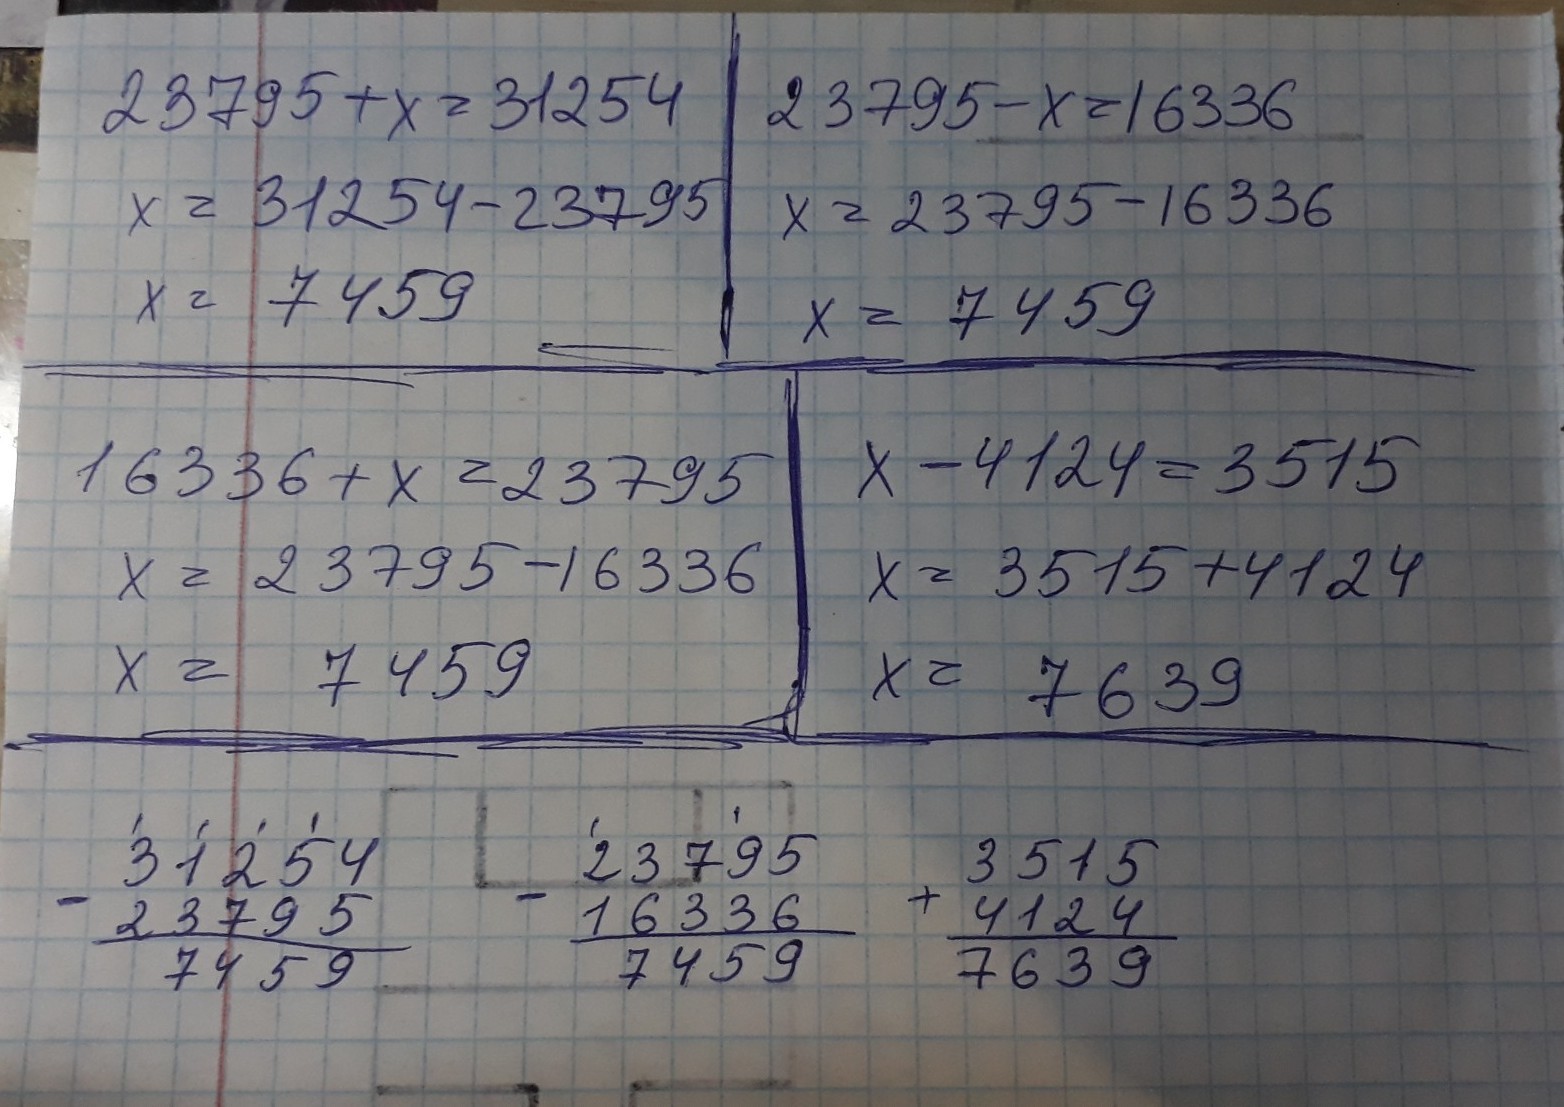 23795+x=31254
x=31254-23795
x=7459
23795-x=16336
x=23795-16336
x=7459
16336+x=23795
x=23795-16336
x=7459
x-4124=3515
x=3515+4124
x=7639
31254
- 23795
7459
23795
- 16336
7459
3515
+ 4124
7639